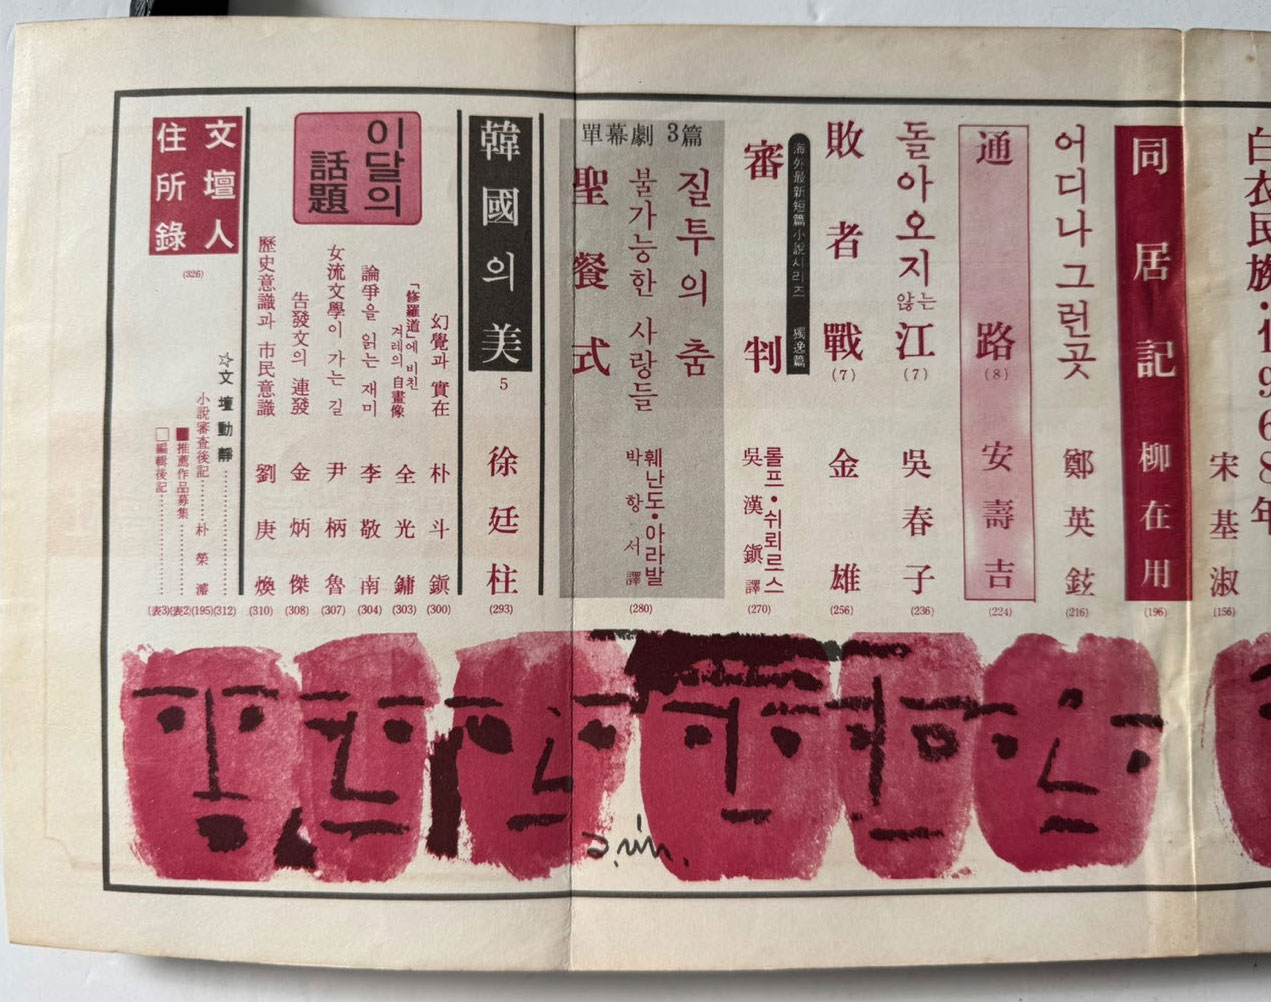 白衣民族·1968年
宋基淑
(156)
同居記
柳在用
(196)
어디나 그런 곳
鄭英鉉
(216)
通路(8)
安壽吉
(224)
돌아오지 않는 江(7)
吳春子
(236)
敗者戰(7)
金雄
(256)
海外最新短篇小說시리즈 獨逸篇
審判
롤프·쉬뢰르스
吳漢鎭 譯
(270)
單幕劇 3篇
질투의 춤
불가능한 사랑들
聖餐式
훼난도·아라발
박항서 譯
(280)
韓國의 美
5
徐廷柱
(293)
이달의
話題
幻覺과 實在 朴斗鎭 (300)
「修羅道」에 비친
겨레의 自畫像 全光鏞 (303)
論爭을 읽는 재미 李敬南 (304)
女流文學이 가는 길 尹柄魯 (307)
告發文의 連發 金炳傑 (308)
歷史意識과 市民意識 劉庚煥 (310)
文壇人
住所錄
(326)
☆文壇動靜 (312)
小說審査後記 朴榮濬 (195)
■推薦作品募集 (表2)
□編輯後記 (表3)